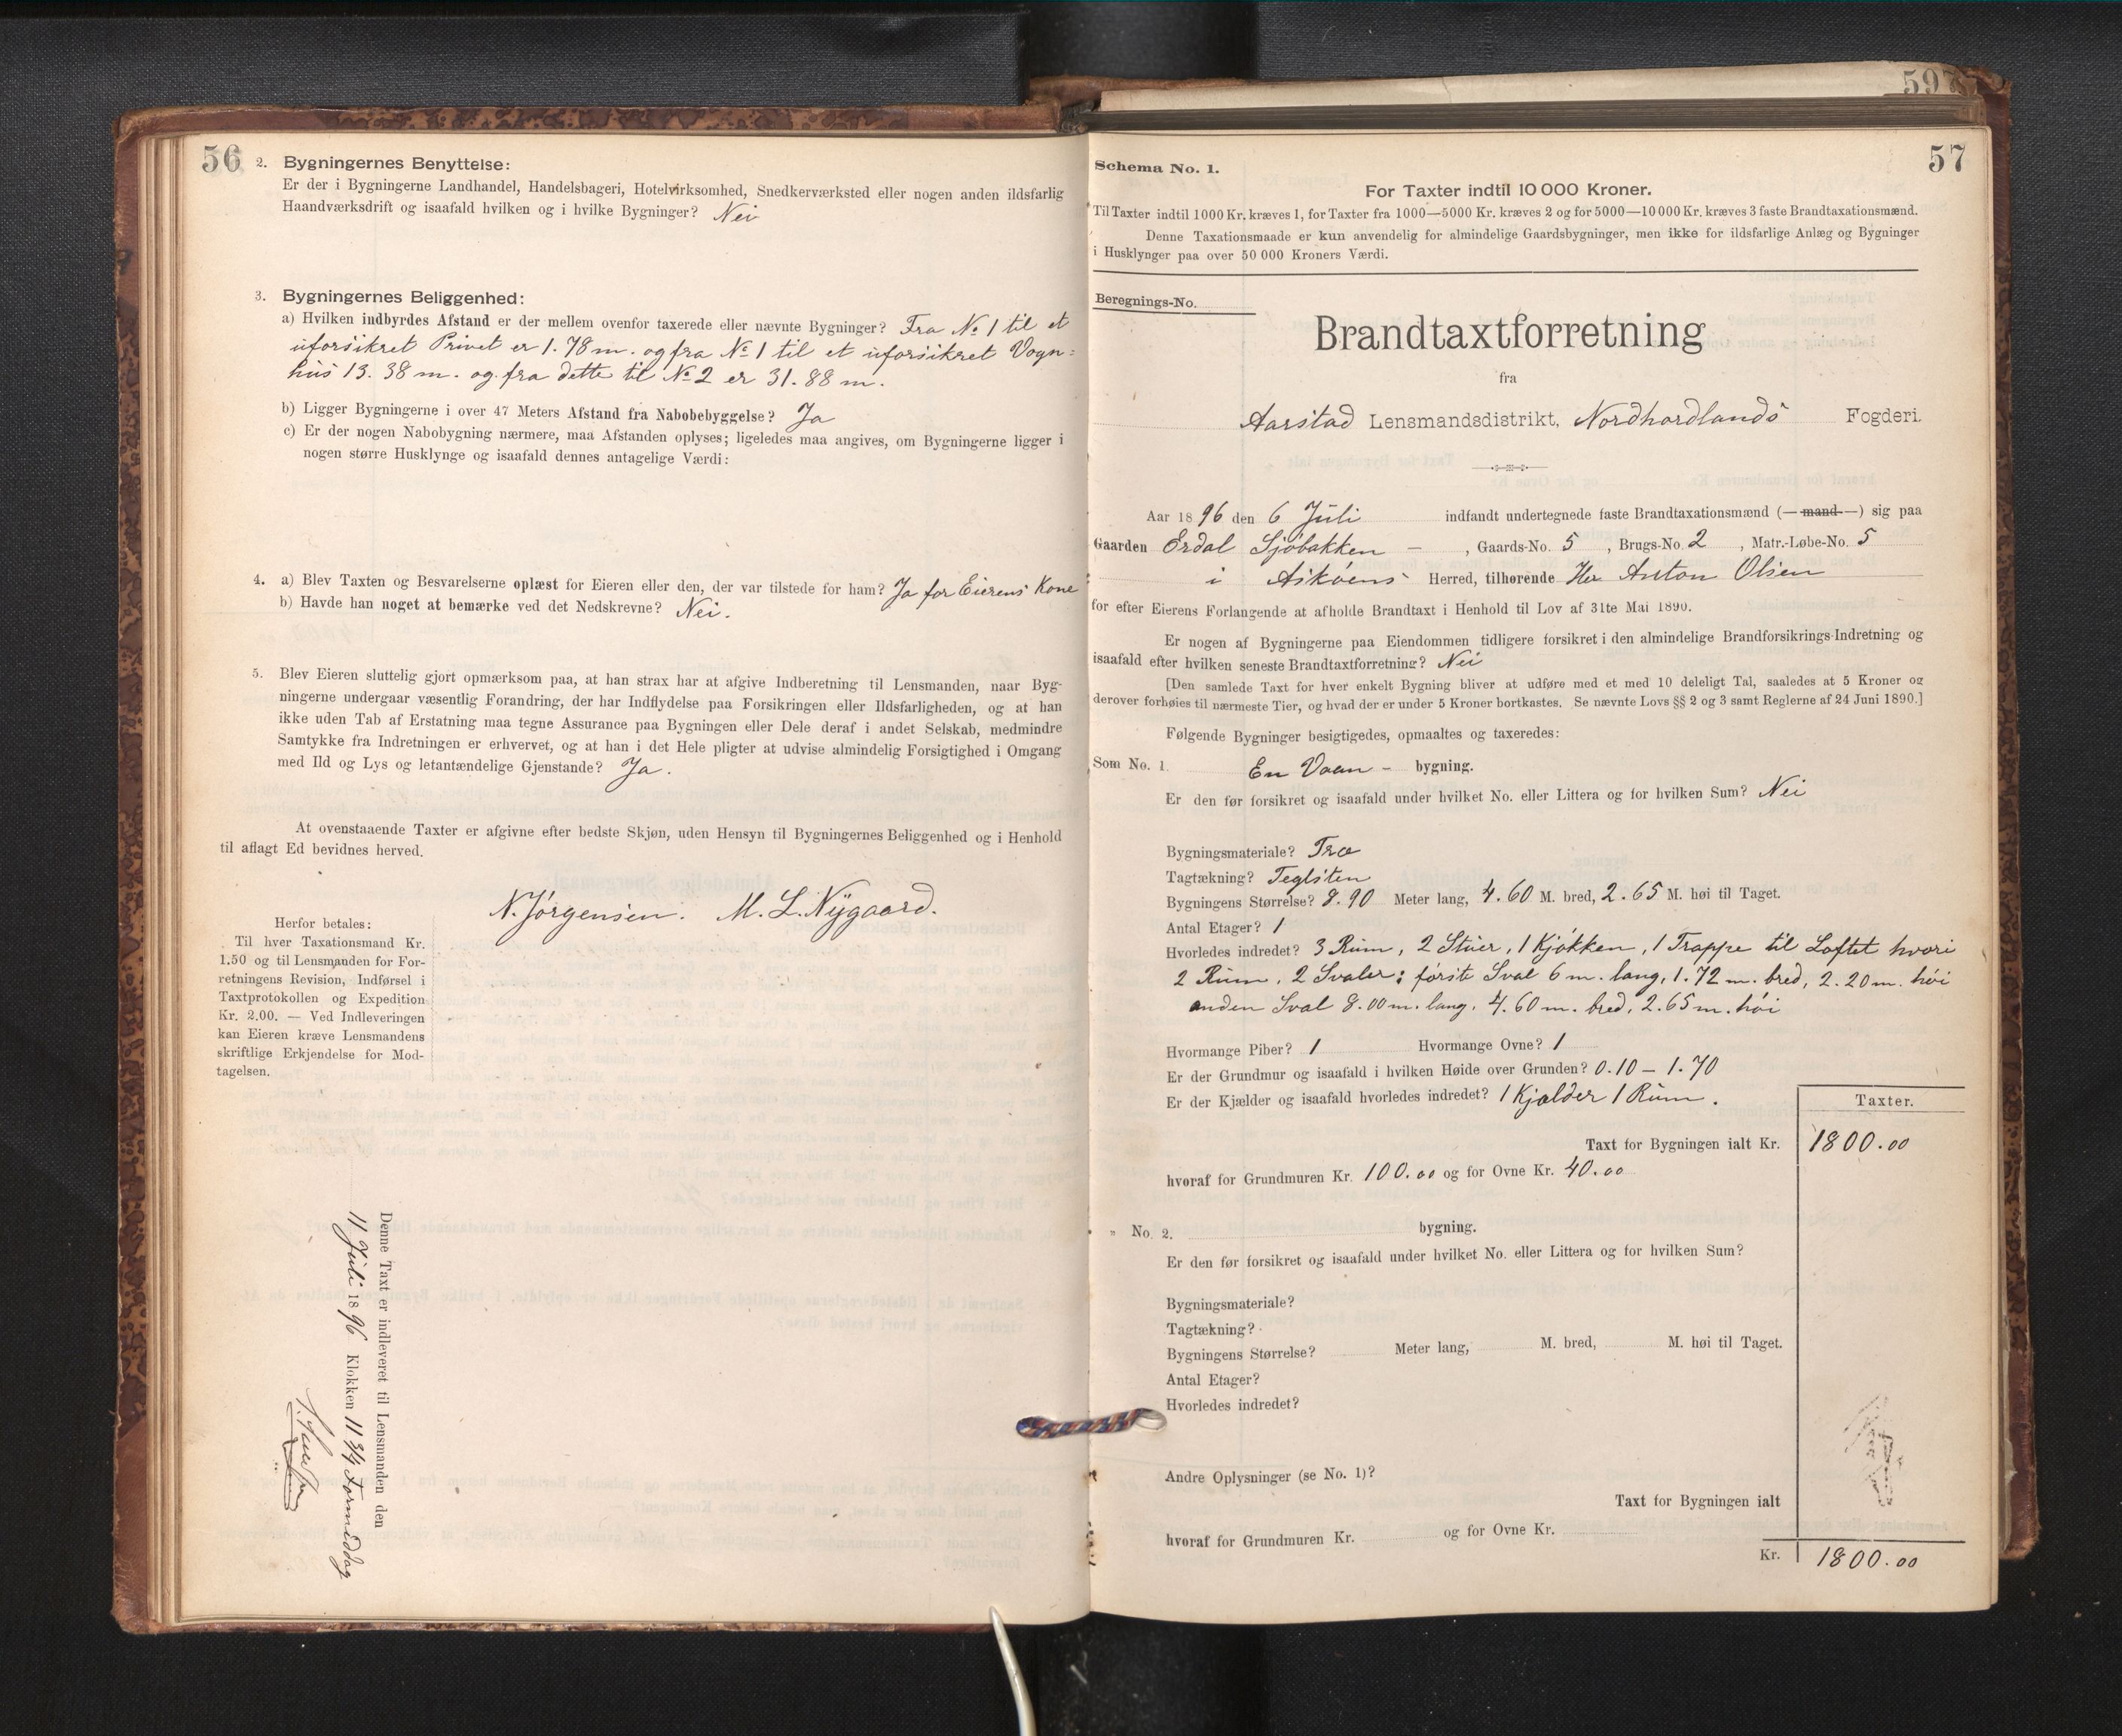 56
2. Bygningernes Benyttelse:
Er der i Bygningerne Landhandel, Handelsbageri, Hotelvirksomhed, Snedkerværksted eller nogen anden ildsfarlig
Haandværksdrift og isaafald hvilken og i hvilke Bygninger? Nei
3. Bygningernes Beliggenhed:
a) Hvilken indbyrdes Afstand er der mellem ovenfor taxerede eller nævnte Bygninger? Fra No 1 til et
uforsikret Privet er 1.78 m. og fra No 1 til et uforsikret Vogn=
hus 13.38 m. og fra dette til No 2 er 31.88 m.
b) Ligger Bygningerne i over 47 Meters Afstand fra Nabobebyggelse? Ja
c) Er der nogen Nabobygning nærmere, maa Afstanden oplyses; ligeledes maa angives, om Bygningerne ligger i
nogen større Husklynge og isaafald dennes antagelige Værdi:
4. a) Blev Taxten og Besvarelserne oplæst for Eieren eller den, der var tilstede for ham? Ja for Eierens Kone
b) Havde han noget at bemærke ved det Nedskrevne? Nei.
5. Blev Eieren sluttelig gjort opmærksom paa, at han strax har at afgive Indberetning til Lensmanden, naar Byg-
ningerne undergaar væsentlig Forandring, der har Indflydelse paa Forsikringen eller Ildsfarligheden, og at han
ikke uden Tab af Erstatning maa tegne Assurance paa Bygningen eller Dele deraf i andet Selskab, medmindre
Samtykke fra Indretningen er erhvervet, og at han i det Hele pligter at udvise almindelig Forsigtighed i Omgang
med Ild og Lys og letantændelige Gjenstande? Ja.
At ovenstaaende Taxter er afgivne efter bedste Skjøn, uden Hensyn til Bygningernes Beliggenhed og i Henhold
til aflagt Ed bevidnes herved.
N. Jørgensen. M. L. Nygaard.
Herfor betales:
Til hver Taxationsmand Kr.
1.50 og til Lensmanden for For-
retningens Revision, Indførsel i
Taxtprotokollen og Expedition
Kr. 2.00. — Ved Indleveringen
kan Eieren kræve Lensmandens
skriftlige Erkjendelse for Mod-
tagelsen.
Denne Taxt er indleveret til Lensmanden den
11 Juli 1896 Klokken 11 3/4 Formiddag
597
57
Schema No. 1.
For Taxter indtil 10 000 Kroner.
Til Taxter indtil 1000 Kr. kræves 1, for Taxter fra 1000—5000 Kr. kræves 2 og for 5000—10 000 Kr. kræves 3 faste Brandtaxationsmænd.
Denne Taxationsmaade er kun anvendelig for almindelige Gaardsbygninger, men ikke for ildsfarlige Anlæg og Bygninger
i Husklynger paa over 50 000 Kroners Værdi.
Beregnings-No.
Brandtaxtforretning
fra
Aarstad Lensmandsdistrikt, Nordhordlands Fogderi.
Aar 1896 den 6 Juli indfandt undertegnede faste Brandtaxationsmænd (—mand—) sig paa
Gaarden Erdal Sjøbakken - , Gaards-No. 5 , Brugs-No. 2 , Matr.-Løbe-No. 5
i Askøens Herred, tilhørende Hr Anton Olsen
for efter Eierens Forlangende at afholde Brandtaxt i Henhold til Lov af 31te Mai 1890.
Er nogen af Bygningerne paa Eiendommen tidligere forsikret i den almindelige Brandforsikrings-Indretning og
isaafald efter hvilken seneste Brandtaxtforretning? Nei
[Den samlede Taxt for hver enkelt Bygning bliver at udføre med et med 10 deleligt Tal, saaledes at 5 Kroner og
derover forhøies til nærmeste Tier, og hvad der er under 5 Kroner bortkastes. Se nævnte Lovs §§ 2 og 3 samt Reglerne af 24 Juni 1890.]
Følgende Bygninger besigtigedes, opmaaltes og taxeredes:
Som No. 1. En Vaan - bygning.
Er den før forsikret og isaafald under hvilket No. eller Littera og for hvilken Sum? Nei
Bygningsmateriale? Træ
Tagtækning? Teglsten
Bygningens Størrelse? 8.90 Meter lang, 4.60 M. bred, 2.65 M. høi til Taget.
Antal Etager? 1
Hvorledes indredet? 3 Rum, 2 Stuer, 1 Kjøkken, 1 Trappe til Loftet hvori
2 Rum, 2 Svaler: første Sval 6 m. lang, 1.72 m. bred, 2.20 m. høi
anden Sval 8.00 m. lang, 4.60 m. bred, 2.65 m. høi
Hvormange Piber? 1 Hvormange Ovne? 1
Er der Grundmur og isaafald i hvilken Høide over Grunden? 0.10 - 1.70
Er der Kjælder og isaafald hvorledes indredet? 1 Kjælder 1 Rum.
Taxter.
Taxt for Bygningen ialt Kr. 1800.00
hvoraf for Grundmuren Kr. 100.00 og for Ovne Kr. 40.00
" No. 2. bygning.
Er den før forsikret og isaafald under hvilket No. eller Littera og for hvilken Sum?
Bygningsmateriale?
Tagtækning?
Bygningens Størrelse? Meter lang, M. bred, M. høi til Taget.
Antal Etager?
Hvorledes indredet?
Andre Oplysninger (se No. 1)?
Taxt for Bygningen ialt
hvoraf for Grundmuren Kr. og for Ovne Kr.
Kr. 1800.00